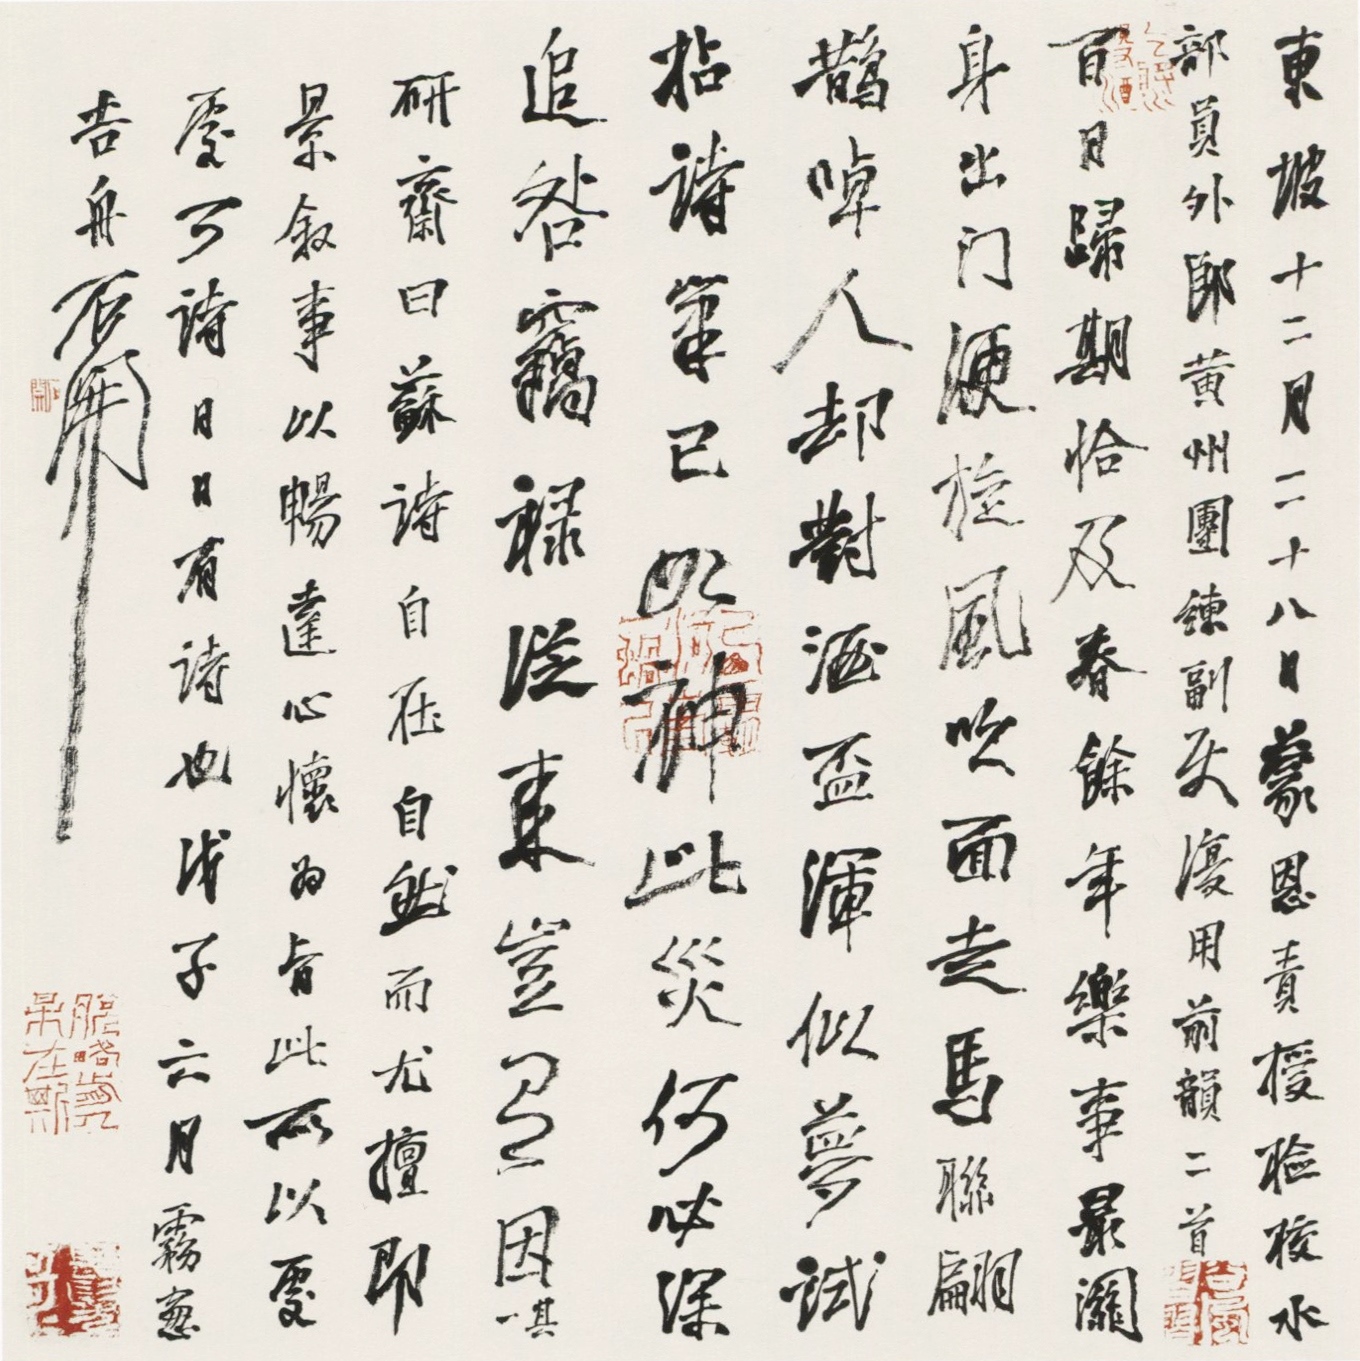 東坡十二月二十八日蒙恩責授檢校水
部員外郎黃州團練副使復用前韻二首
百日歸期恰及春餘年樂事最關
身出门便旋風吹面走馬聯翩
鵲啅人却對酒盃渾似夢試
拈詩筆已如神此災何必深
追咎竊祿從來豈有因其一
研齋曰蘇詩自在自然而尤擅即
景叙事以暢達心懷為旨此所以處
處可詩日日有詩也戊子六月霧窗
吉舟石開